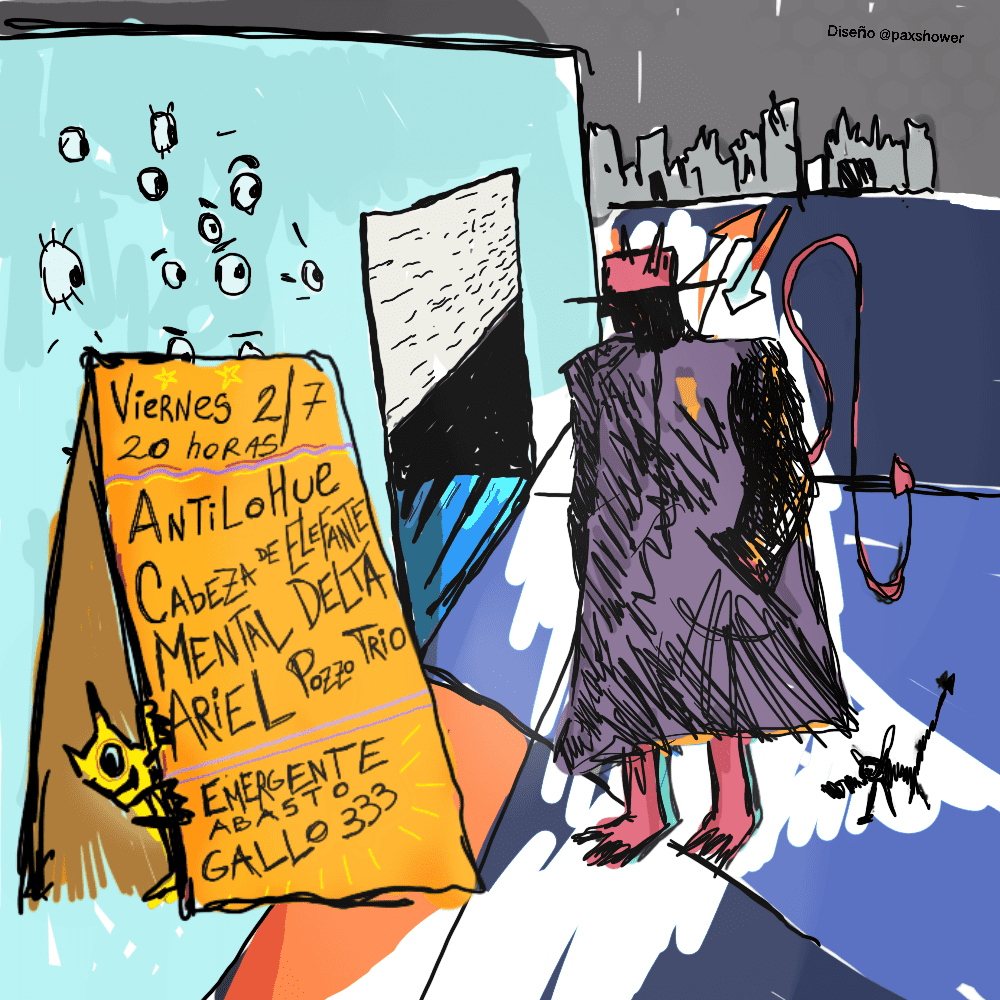 Diseño @paxshower
Viernes 2/7
20 horas
Antilohue
Cabeza de Elefante
Mental Delta
Ariel Pozzo Trio
Emergente
Abasto
Gallo 333